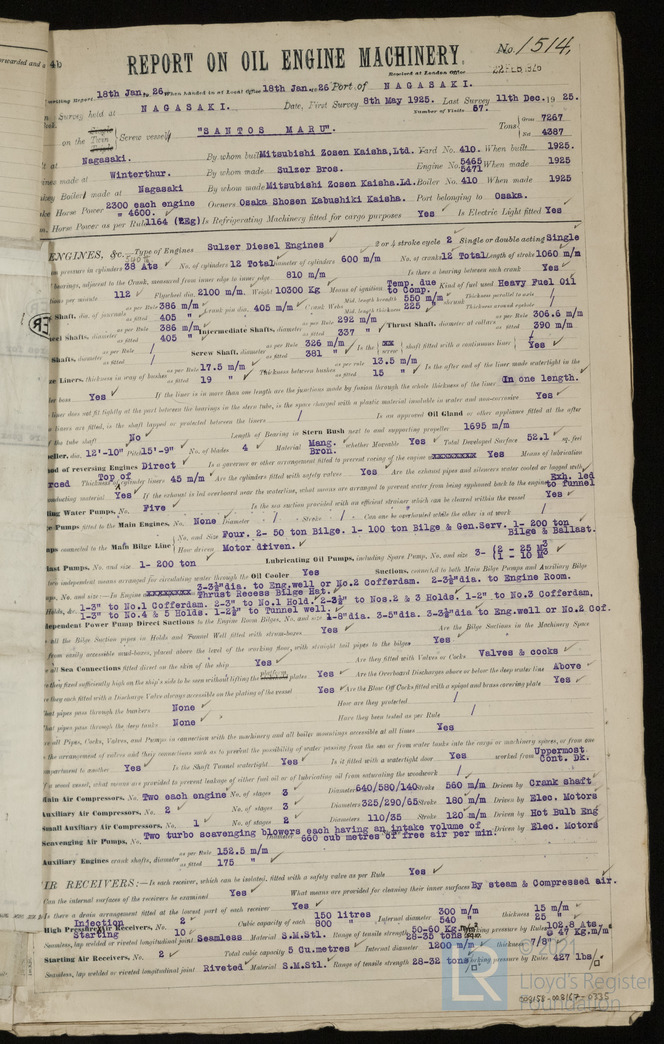 4b
REPORT ON OIL ENGINE MACHINERY.
No. 1514.
Received at London Office 22 FEB 1926
Writing Report 18th Jan. 26. When handed in at Local Office 18th Jan. 26 Port of NAGASAKI.
Survey held at NAGASAKI. Date, First Survey 8th May 1925. Last Survey 11th Dec. 1925.
Number of Visits 57.
on the Twin Screw vessel "SANTOS MARU". Tons Gross 7267 Net 4387
at Nagasaki. By whom built Mitsubishi Zosen Kaisha, Ltd. Yard No. 410. When built 1925.
made at Winterthur. By whom made Sulzer Bros. Engine No. 5465 5471 When made 1925
Boiler made at Nagasaki By whom made Mitsubishi Zosen Kaisha. Ld. Boiler No. 410 When made 1925
Horse Power 2300 each engine " 4600. Owners Osaka Shosen Kabushiki Kaisha. Port belonging to Osaka.
Horse Power as per Rule 1164 Is Refrigerating Machinery fitted for cargo purposes Yes Is Electric Light fitted Yes
ENGINES, &c. Type of Engines Sulzer Diesel Engines 2 or 4 stroke cycle 2 Single or double acting Single
pressure in cylinders 38 Ats No. of cylinders 12 Total Diameter of cylinders 600 m/m No. of cranks 12 Total Length of stroke 1060 m/m
bearings, adjacent to the Crank, measured from inner edge to inner edge 810 m/m Is there a bearing between each crank Yes
per minute 112 Flywheel dia. 2100 m/m. Weight 10300 Kg Means of ignition Temp. due to Comp. Kind of fuel used Heavy Fuel Oil
Shaft, dia. of journals as per Rule 386 m/m as fitted 405 " Crank pin dia. 405 m/m Crank Webs Mid. length breadth 550 m/m Mid. length thickness 225 " shrunk Thickness parallel to axis / Thickness around eyehole /
Shafts, diameter as per Rule 386 m/m as fitted 405 " Intermediate Shafts, diameter as per Rule 292 m/m as fitted 337 " Thrust Shaft, diameter at collars as per Rule 306.6 m/m as fitted 390 m/m
Shafts, diameter as per Rule / as fitted / Screw Shaft, diameter as per Rule 326 m/m as fitted 381 " Is the screw shaft fitted with a continuous liner Yes
Liners, thickness in way of bushes as per Rule 17.5 m/m as fitted 19 " Thickness between bushes as per rule 13.5 m/m as fitted 15 " Is the after end of the liner made watertight in the
boss Yes If the liner is in more than one length are the junctions made by fusion through the whole thickness of the liner In one length.
liner does not fit tightly at the part between the bearings in the stern tube, is the space charged with a plastic material insoluble in water and non-corrosive Yes
liners are fitted, is the shaft lapped or protected between the liners / Is an approved Oil Gland or other appliance fitted at the after
of the tube shaft No Length of Bearing in Stern Bush next to and supporting propeller 1695 m/m
dia. 12'-10" Pitch 15'-9" No. of blades 4 Material Mang. Bron. whether Moveable Yes Total Developed Surface 52.1 sq. feet
of reversing Engines Direct Is a governor or other arrangement fitted to prevent racing of the engine xxxxxxxx Yes Means of lubrication
Forced Top of Thickness of cylinder liners 45 m/m Are the cylinders fitted with safety valves Yes Are the exhaust pipes and silencers water cooled or lagged with
conducting material Yes If the exhaust is led overboard near the waterline, what means are arranged to prevent water being syphoned back to the engine Exh. led to funnel
Cooling Water Pumps, No. Five Is the sea suction provided with an efficient strainer which can be cleared within the vessel Yes
Pumps fitted to the Main Engines, No. None Diameter / Stroke / Can one be overhauled while the other is at work /
connected to the Main Bilge Line No. and Size Four. 2- 50 ton Bilge. 1- 100 ton Bilge & Gen.Serv. 1- 200 ton Bilge & Ballast.
How driven Motor driven.
Ballast Pumps, No. and size 1- 200 ton Lubricating Oil Pumps, including Spare Pump, No. and size 3- (2 - 25 M3 (1 - 10 M3
two independent means arranged for circulating water through the Oil Cooler Yes Suctions, connected to both Main Bilge Pumps and Auxiliary Bilge
Pumps, No. and size:—In Engine xxxxxxxx 3-3½"dia. to Eng.well or No.2 Cofferdam. 2-3½"dia. to Engine Room. Thrust Recess Bilge Hat.
Holds, &c. 1-3" to No.1 Cofferdam. 2-3" to No.1 Hold. 2-3½" to Nos.2 & 3 Holds. 1-2" to No.3 Cofferdam,
1-3" to No.4 & 5 Holds. 1-2½" to Tunnel well.
Independent Power Pump Direct Suctions to the Engine Room Bilges, No. and size 1-8"dia. 3-5"dia. 3-3½"dia to Eng.well or No.2 Cof.
all the Bilge Suction pipes in Holds and Tunnel Well fitted with strum-boxes Yes Are the Bilge Suctions in the Machinery Space
from easily accessible mud-boxes, placed above the level of the working floor, with straight tail pipes to the bilges Yes
all Sea Connections fitted direct on the skin of the ship Yes Are they fitted with Valves or Cocks Valves & cocks
they fixed sufficiently high on the ship's side to be seen without lifting the platform plates Yes Are the Overboard Discharges above or below the deep water line Above
they each fitted with a Discharge Valve always accessible on the plating of the vessel Yes Are the Blow Off Cocks fitted with a spigot and brass covering plate Yes
What pipes pass through the bunkers None How are they protected /
What pipes pass through the deep tanks None Have they been tested as per Rule /
all Pipes, Cocks, Valves, and Pumps in connection with the machinery and all boiler mountings accessible at all times Yes
the arrangement of valves and their connections such as to prevent the possibility of water passing from the sea or from water tanks into the cargo or machinery spaces, or from one
compartment to another Yes Is the Shaft Tunnel watertight Yes Is it fitted with a watertight door Yes worked from Uppermost Cont. Dk.
a wood vessel, what means are provided to prevent leakage of either fuel oil or of lubricating oil from saturating the woodwork /
Main Air Compressors, No. Two each engine No. of stages 3 Diameters 640/580/140 Stroke 560 m/m Driven by Crank shaft
Auxiliary Air Compressors, No. 2 No. of stages 3 Diameters 325/290/65 Stroke 180 m/m Driven by Elec. Motors
Small Auxiliary Air Compressors, No. 1 No. of stages 2 Diameters 110/35 Stroke 120 m/m Driven by Hot Bulb Eng
Scavenging Air Pumps, No. Two turbo scavenging blowers each having an intake volume of 660 cub metres of free air per min. Driven by Elec. Motors
Auxiliary Engines crank shafts, diameter as per Rule 152.5 m/m as fitted 175 "
AIR RECEIVERS:—Is each receiver, which can be isolated, fitted with a safety valve as per Rule Yes
Can the internal surfaces of the receivers be examined Yes What means are provided for cleaning their inner surfaces By steam & Compressed air.
Is there a drain arrangement fitted at the lowest part of each receiver Yes
High Pressure Air Receivers, No. Injection 2 Starting 10 Cubic capacity of each 150 litres 800 " Internal diameter 300 m/m 540 " thickness 15 m/m 25 "
Seamless, lap welded or riveted longitudinal joint Seamless Material S.M.Stl. Range of tensile strength 50-60 Kg. 28-35 tons Working pressure by Rules 102.8 Ats. @ 47 Kg.m/m
Starting Air Receivers, No. 2 Total cubic capacity 5 Cu.metres Internal diameter 1200 m/m thickness 7/8"
Seamless, lap welded or riveted longitudinal joint Riveted Material S.M.Stl. Range of tensile strength 28-32 tons Working pressure by Rules 427 lbs/□"
LR
© 2021
Lloyd's Register
Foundation